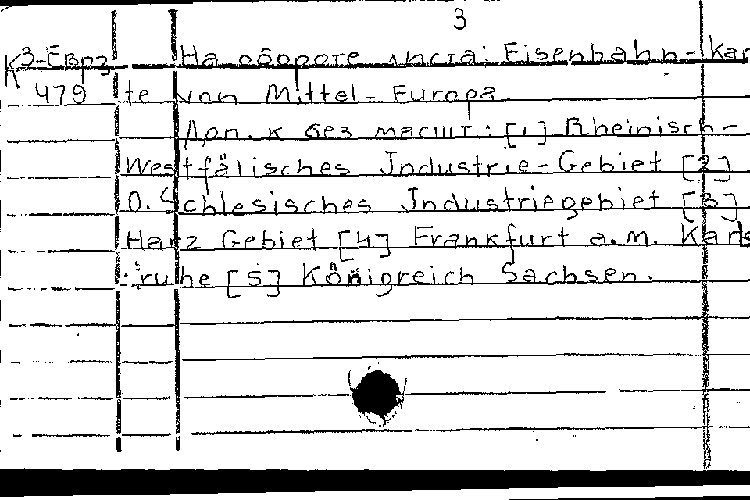 3
К3-Евр3 На обороте листа: Eisenbahn-Kar
479 te von Mittel-Europa
Доп. к без масшт.: [1] Rheinisch-
Westfälisches Industrie-Gebiet [2]
O. Schlesisches Industriegebiet [3]
Harz Gebiet [4] Frankfurt a.m. Karls
ruhe [5] Königreich Sachsen.